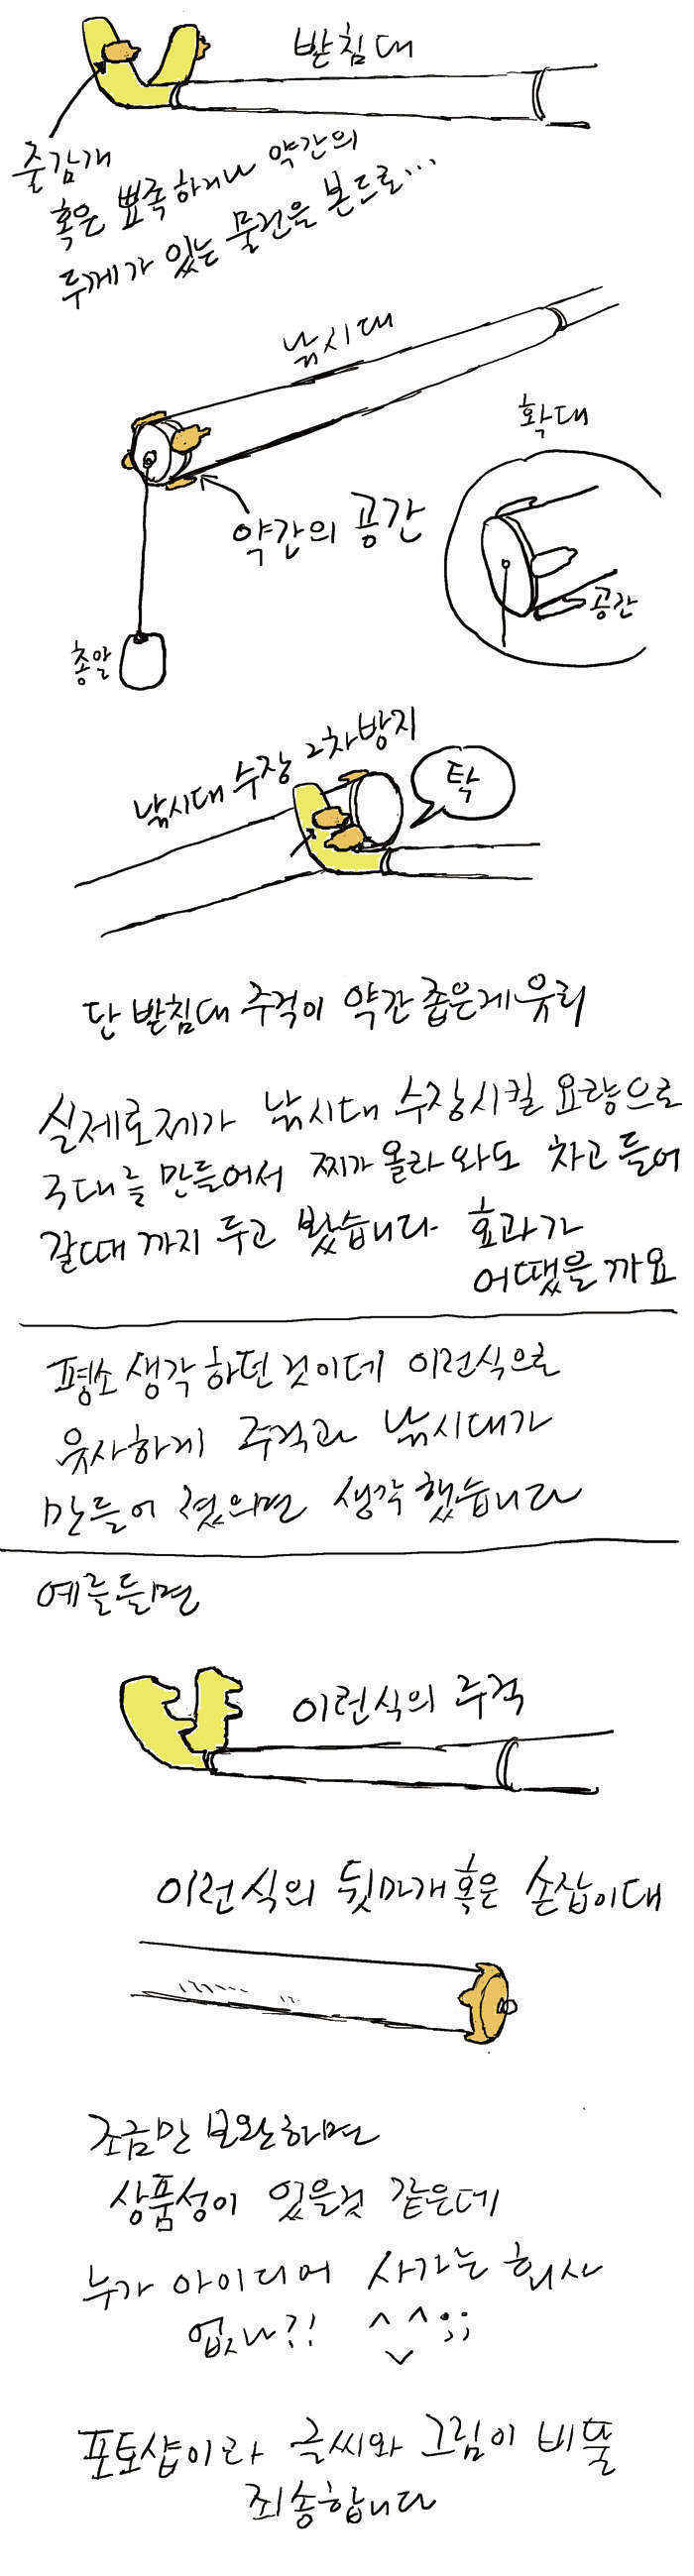 받침대
줄감개
혹은 뾰족하거나 약간의
두께가 있는 물건을 본드로...
낚시대
확대
약간의 공간
공간
총알
낚시대 수장 2차방지
탁
단 받침대 주걱이 약간 좁은게 유리
실제로 제가 낚시대 수장시킬 요량으로
3대를 만들어서 찌가 올라와도 차고 들어
갈때 까지 두고 봤습니다 효과가
어땠을까요
평소 생각 하던 것이데 이런식으로
유사하게 주걱과 낚시대가
만들어 졌의면 생각했습니다
예를들면
이런식의 주걱
이런식의 뒷마개 혹은 손잡이대
조금만 보완하면
상품성이 있을것 같은데
누가 아이디어 사가는 회사
없나?! ^_^;;
포토샵이라 글씨와 그림이 비뚤
죄송합니다